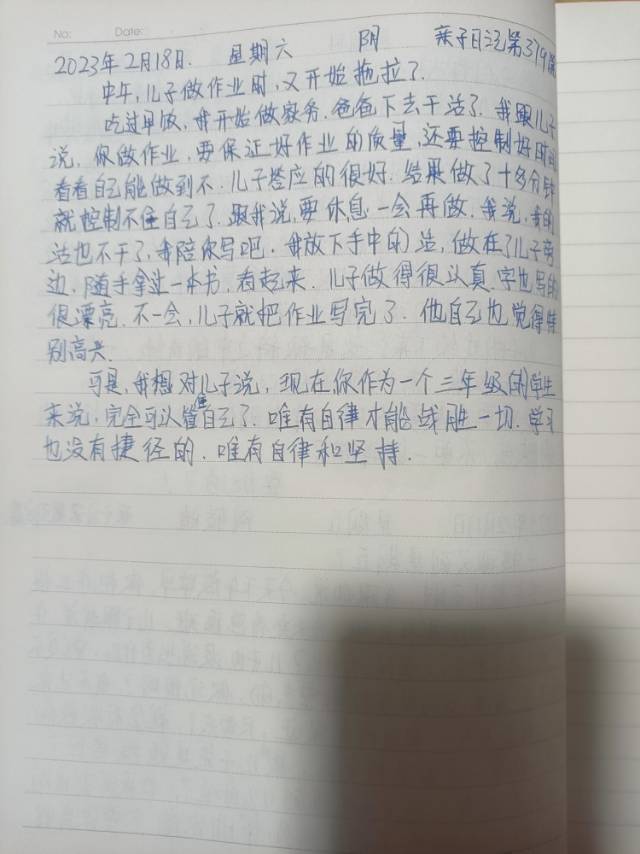 No: Date:
2023年2月18日. 星期六 阴 燕子日记第379篇
中午,儿子做作业时,又开始拖拉了.
吃过早饭,我开始做家务.爸爸下去干活了.我跟儿子
说,你做作业,要保证好作业的质量,还要控制好时间
看看自己能做到不.儿子答应的很好.结果做了十多分钟
就控制不住自己了.跟我说,要休息一会再做.我说,我的
活也不干了,我陪你写吧.我放下手中的活,做在了儿子旁
边,随手拿过一本书,看起来.儿子做得很认真,字也写的
很漂亮.不一会,儿子就把作业写完了.他自己也觉得特
别高兴.
可是,我想对儿子说,现在你作为一个三年级的学生
来说,完全可以管住自己了.唯有自律才能战胜一切.学习
也没有捷径的.唯有自律和坚持.